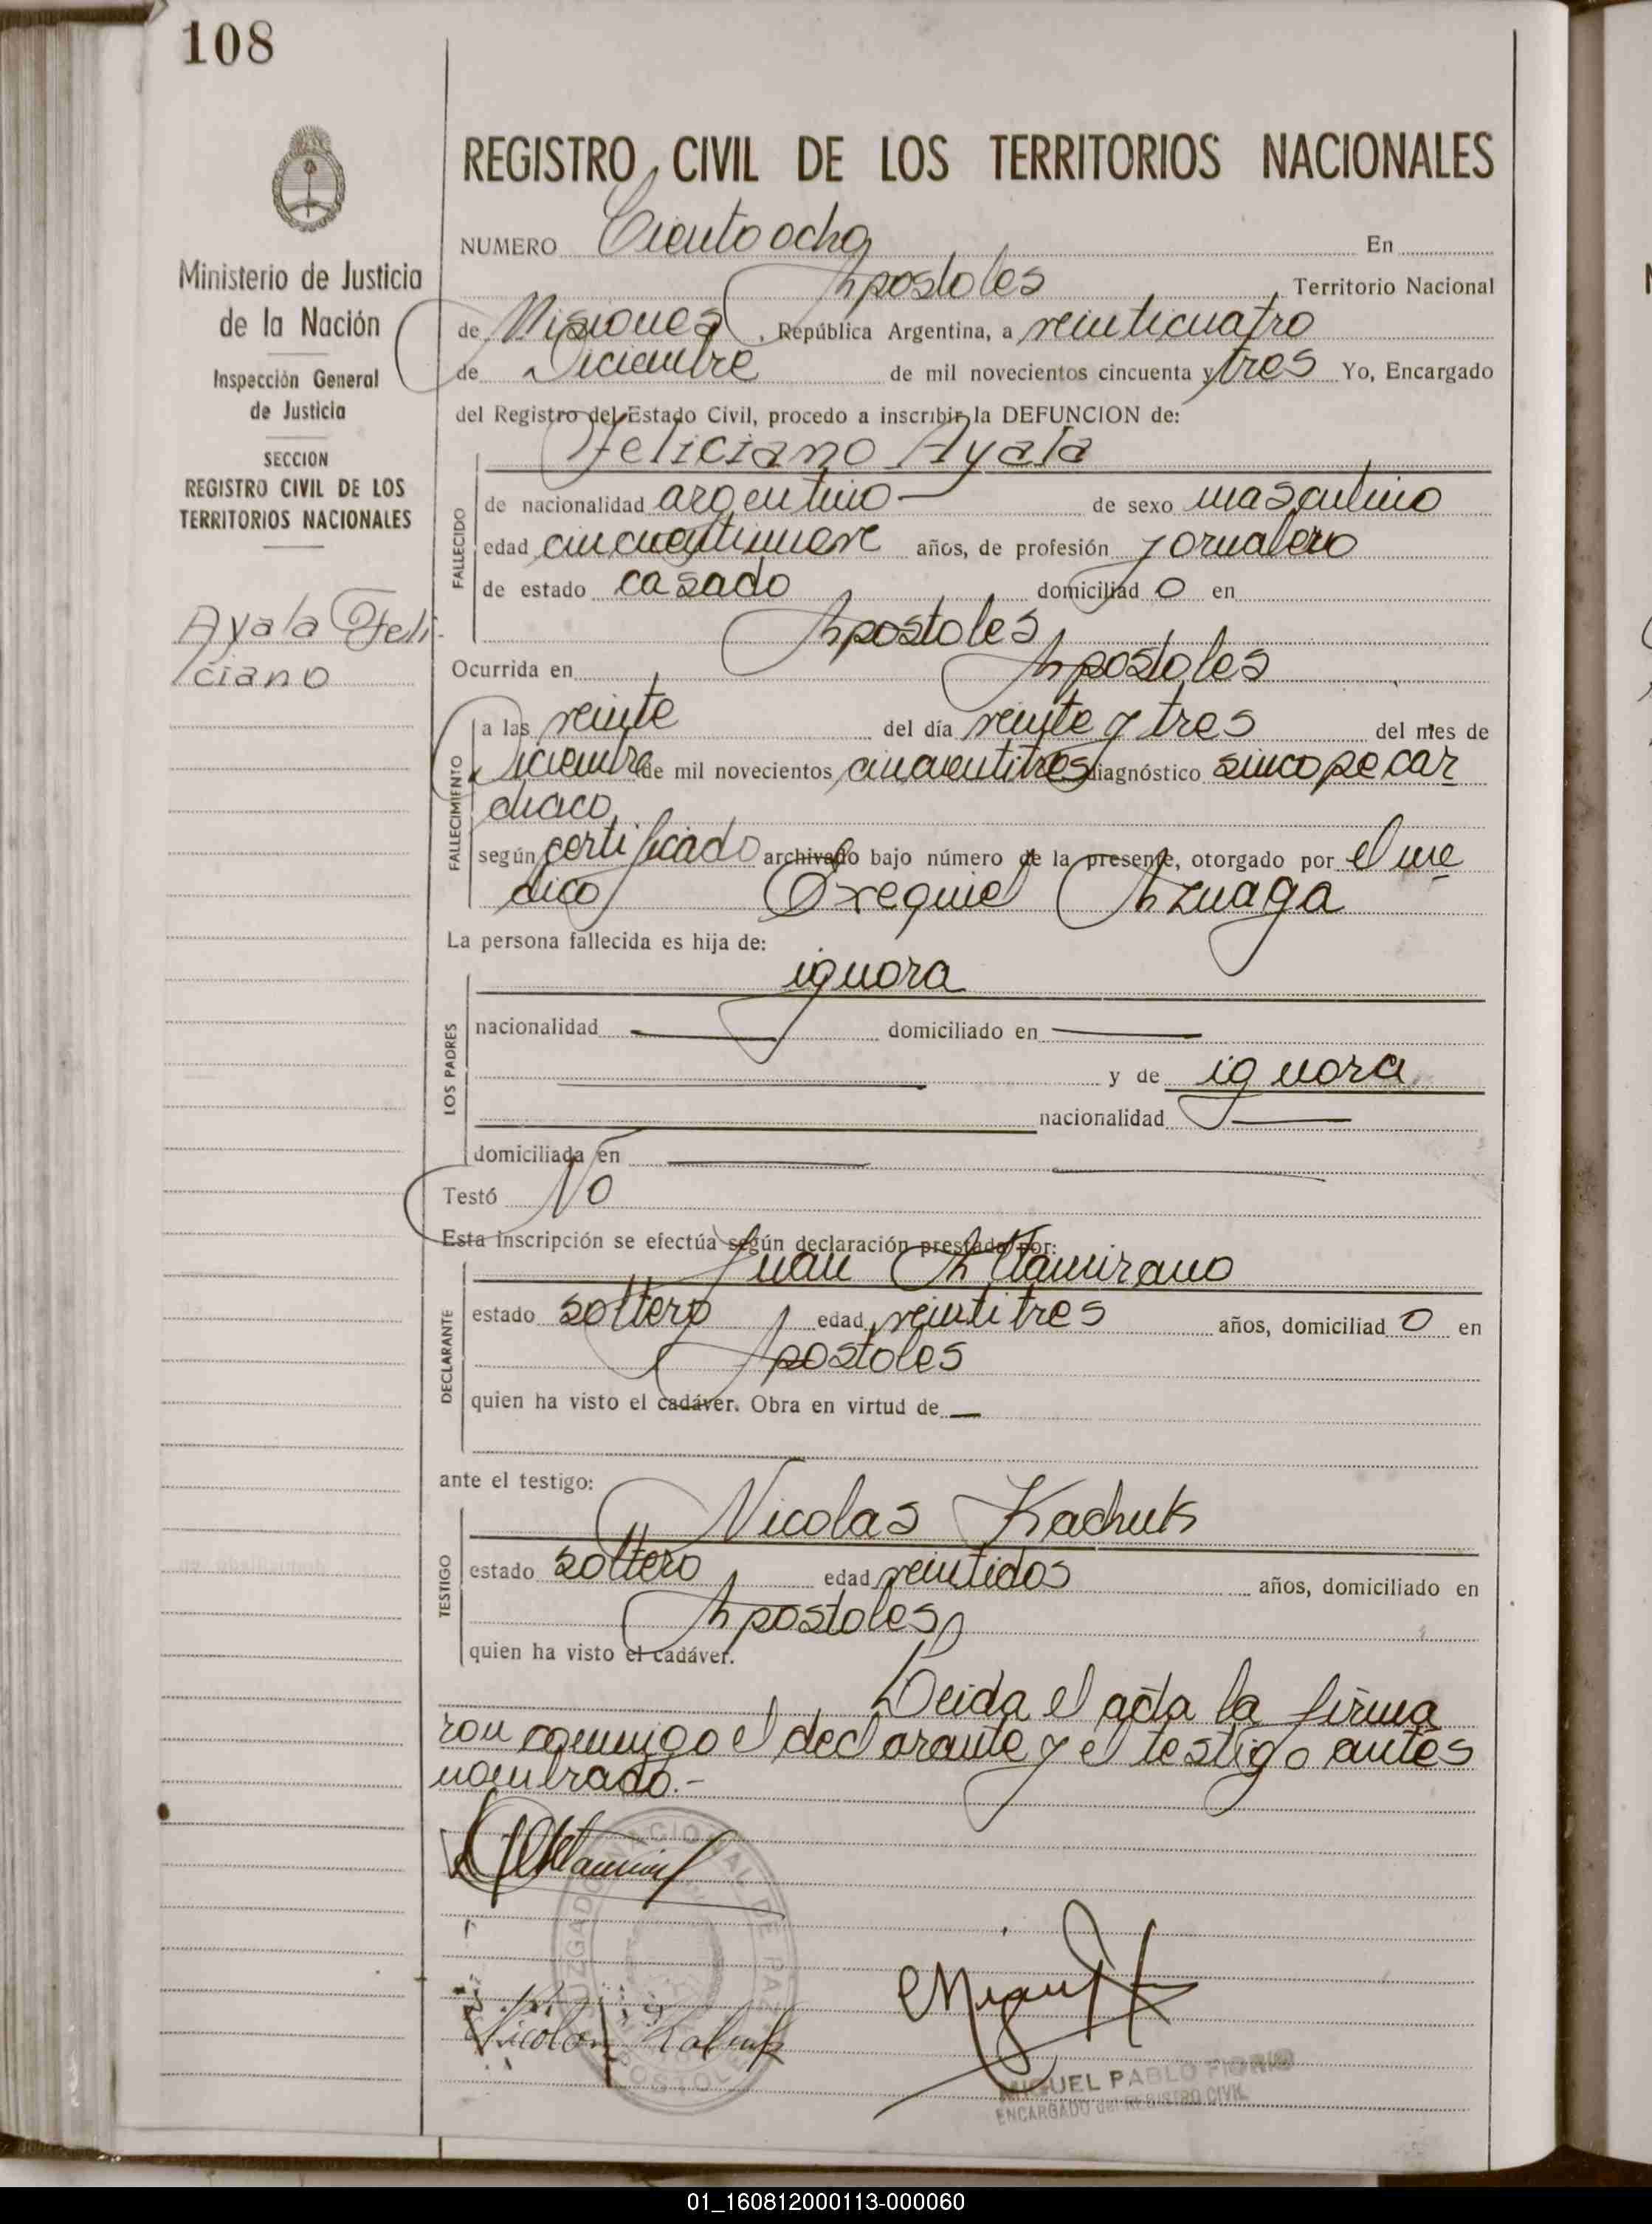 108
Ministerio de Justicia
de la Nación
Inspección General
de Justicia
SECCION
REGISTRO CIVIL DE LOS
TERRITORIOS NACIONALES
Ayala Feli-
ciano
REGISTRO CIVIL DE LOS TERRITORIOS NACIONALES
NUMERO Ciento ocho En
Apostoles Territorio Nacional
de Misiones, República Argentina, a veinticuatro
de Diciembre de mil novecientos cincuenta y tres Yo, Encargado
del Registro del Estado Civil, procedo a inscribir la DEFUNCION de:
Feliciano Ayala
FALLECIDO
de nacionalidad argentino de sexo masculino
edad cincuentinueve años, de profesión jornalero
de estado casado domiciliad o en
Apostoles
Ocurrida en Apostoles
FALLECIMIENTO
a las veinte del día veinte y tres del mes de
Diciembre de mil novecientos cincuentitres diagnóstico sincope car
diaco
según certificado archivado bajo número de la presente, otorgado por el me
dico Exequiel Azuaga
La persona fallecida es hija de:
LOS PADRES
ignora
nacionalidad domiciliado en
y de ignora
nacionalidad
domiciliada en
Testó No
Esta inscripción se efectúa según declaración prestada por:
DECLARANTE
Juan Altamirano
estado soltero edad veintitres años, domiciliad o en
Apostoles
quien ha visto el cadáver. Obra en virtud de
ante el testigo:
TESTIGO
Nicolas Kachuk
estado soltero edad veintidos años, domiciliado en
Apostoles
quien ha visto el cadáver.
Leida el acta la firma
ron conmigo el declarante y el testigo antes
nombrado.-
JUZGADO NACIONAL DE PAZ
APOSTOLES
Nicolas
MIGUEL PABLO FIORIO
ENCARGADO del REGISTRO CIVIL
01_160812000113-000060